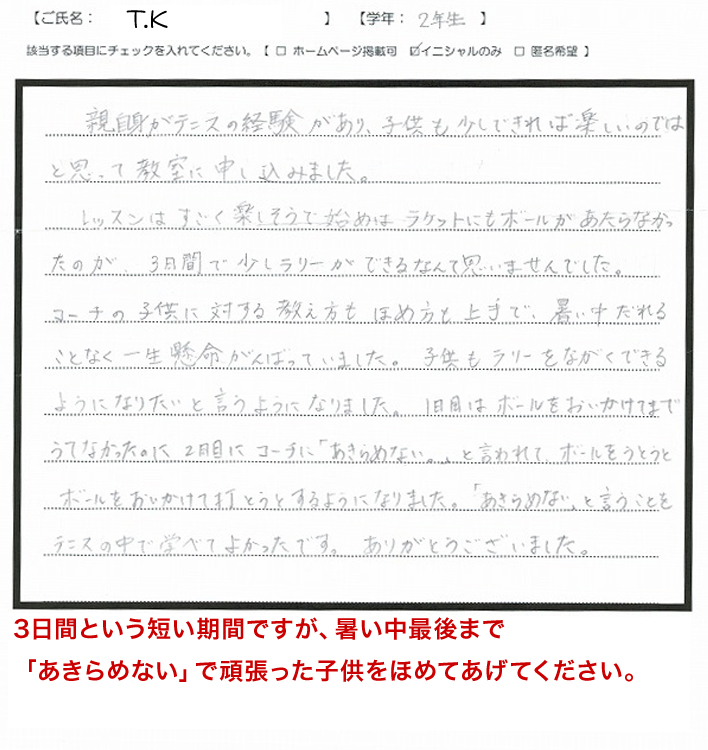 【ご氏名： T.K 】 【学年： 2年生 】
該当する項目にチェックを入れてください。【 □ ホームページ掲載可 ☑イニシャルのみ □ 匿名希望 】
親自身がテニスの経験があり、子供も少しできれば楽しいのでは
と思って教室に申し込みました。
レッスンはすごく楽しそうで始めはラケットにもボールがあたらなかっ
たのが、3日間で少しラリーができるなんて思いませんでした。
コーチの子供に対する教え方も ほめ方も上手で、暑い中だれる
ことなく一生懸命がんばっていました。子供もラリーをながくできる
ようになりたいと言うようになりました。1日目はボールをおいかけてまで
うてなかったのに 2日目にコーチに「あきらめない。」と言われて、ボールをうとうと
ボールをおいかけて打とうとするようになりました。「あきらめない」と言うことを
テニスの中で学べてよかったです。ありがとうございました。
3日間という短い期間ですが、暑い中最後まで
「あきらめない」で頑張った子供をほめてあげてください。